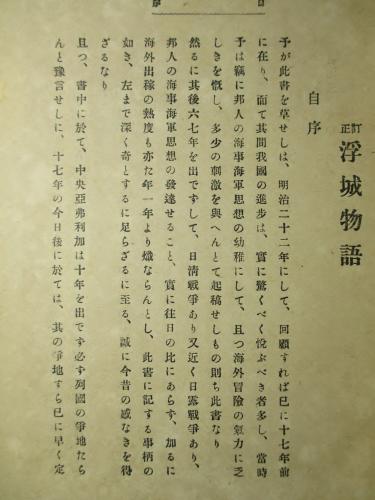 訂正 浮城物語
自序
予が此書を草せしは、明治二十二年にして、回顧すれば已に十七年前
に在り、而て其間我國の進歩は、實に驚くべく悅ぶべき者多し、當時
予は竊に邦人の海事海軍思想の幼稚にして、且つ海外冒險の氣力に乏
しきを慨し、多少の刺激を與へんとて起稿せしもの則ち此書なり
然るに其後六七年を出でずして、日淸戰爭あり又近く日露戰爭あり、
邦人の海事海軍思想の發達せること、實に往日の比にあらず、加るに
海外出稼の熱度も亦た年一年より熾ならんとし、此書に記する事柄の
如き、左まで深く奇とするに足らざるに至る、誠に今昔の感なきを得
ざるなり
且つ、書中に於て、中央亞弗利加は十年を出でず必ず列國の爭地たら
んと豫言せしに、十七年の今日後に於ては、其の爭地すら已に早く定